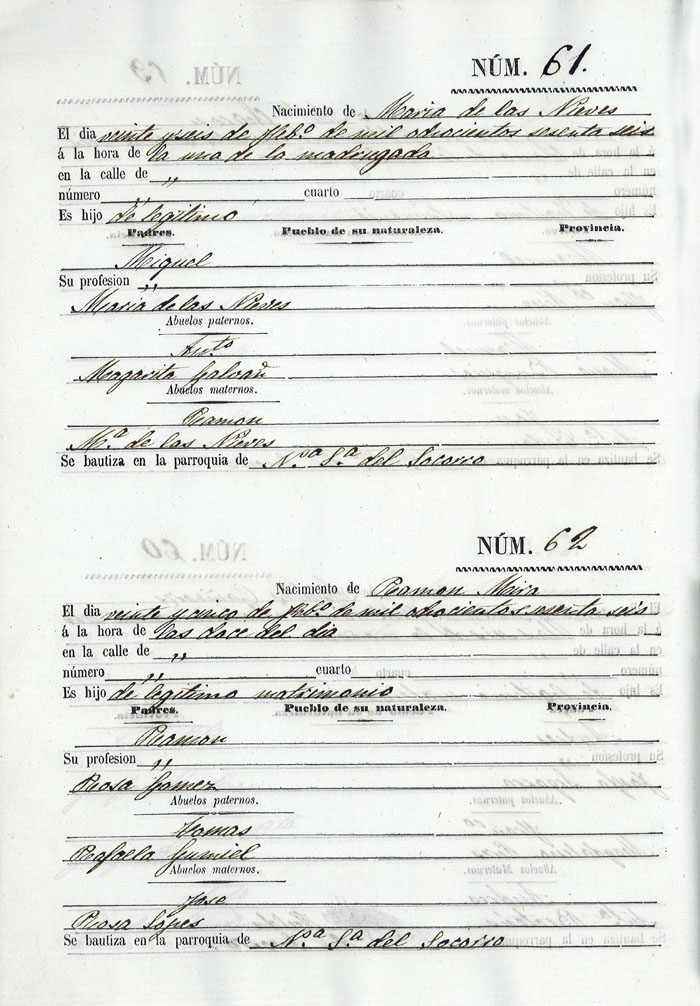 NÚM. 61.
Nacimiento de Maria de las Nieves
El dia veinte y seis de Feb.º de mil ochocientos sesenta seis
á la hora de la una de la madrugada
en la calle de ,,
número ,, cuarto
Es hijo de legitimo
Padres. Pueblo de su naturaleza. Provincia.
Miguel
Su profesion ,,
Maria de las Nieves
Abuelos paternos.
Ant.º
Margarita Galvañ
Abuelos maternos.
Ramon
M.ª de las Nieves
Se bautiza en la parroquia de N.ª S.ª del Socorro
NÚM. 62
Nacimiento de Ramon Mira
El dia veinte y cinco de Feb.º de mil ochocientos sesenta seis
á la hora de las doce del dia
en la calle de ,,
número ,, cuarto
Es hijo de legitimo matrimonio
Padres. Pueblo de su naturaleza. Provincia.
Ramon
Su profesion ,,
Rosa Gomez
Abuelos paternos.
Tomas
Rafaela Gumiel
Abuelos maternos.
Jose
Rosa Lopes
Se bautiza en la parroquia de N.ª S.ª del Socorro